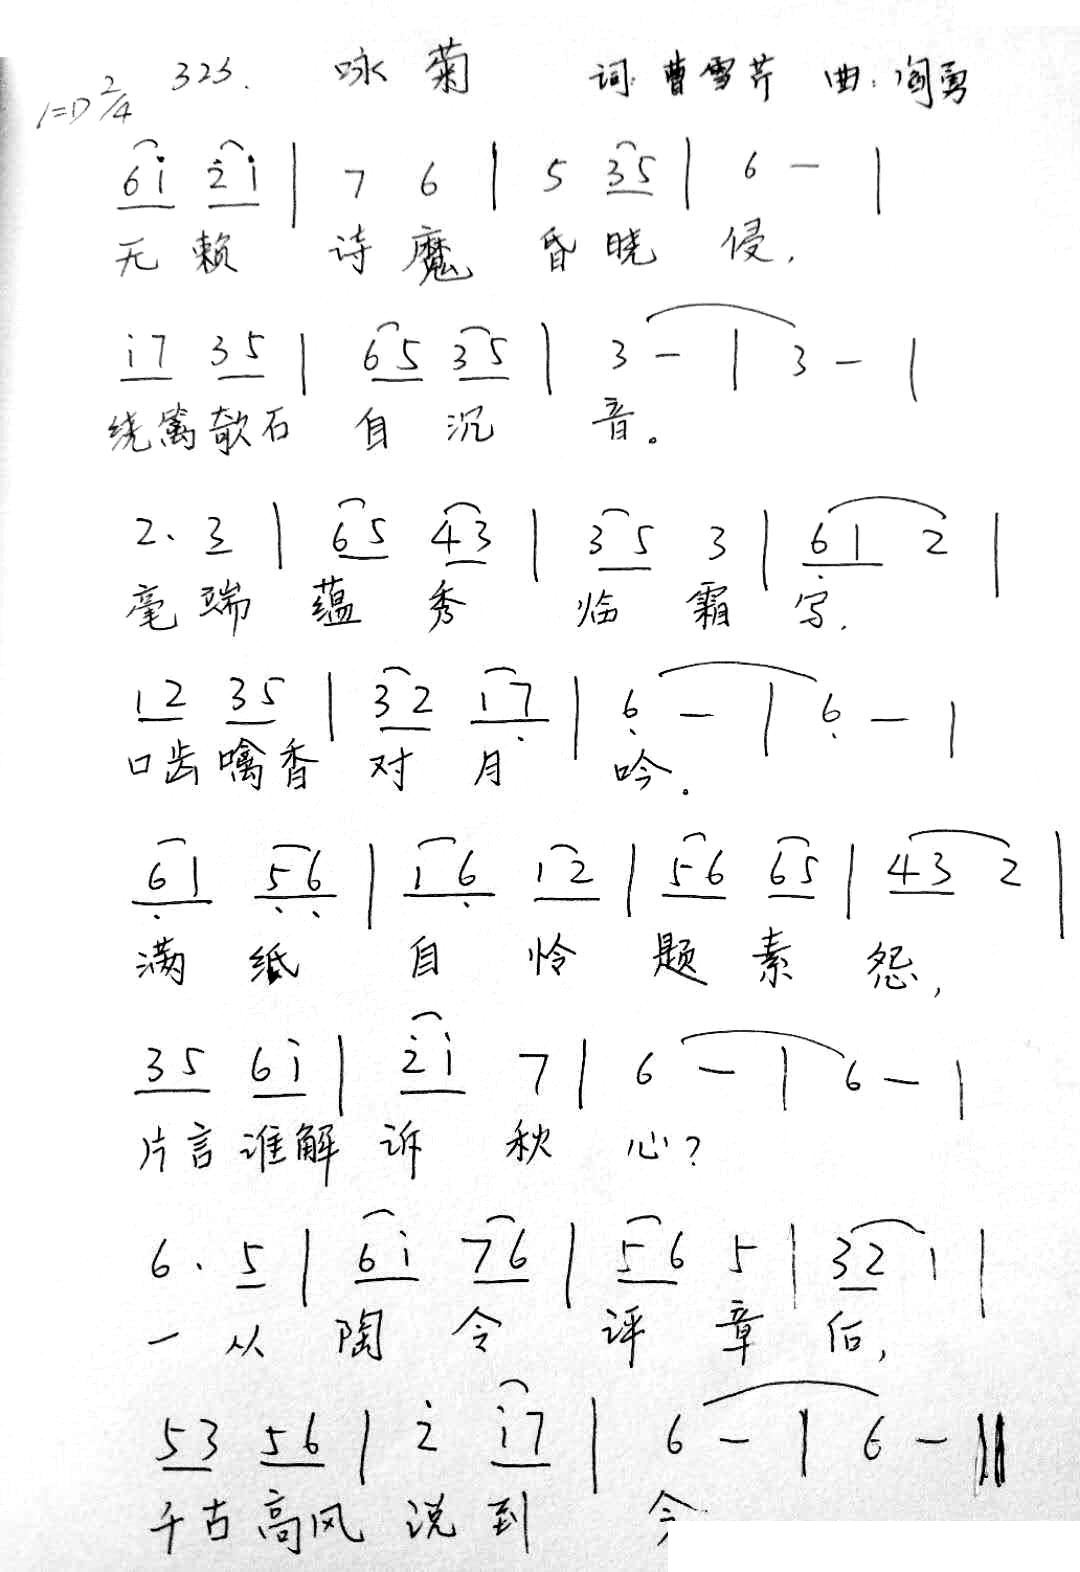 325. 咏菊 词:曹雪芹 曲:阎勇
1=D 2/4
6i 2̇i | 7 6 | 5 35 | 6 – |
无赖 诗魔 昏晓 侵,
i7 35 | 65 35 | 3 – | 3 – |
绕篱欹石 自沉 音。
2. 3 | 65 43 | 35 3 | 6̣1 2 |
毫端 蕴秀 临霜 写,
12 35 | 32 17̣ | 6̣ – | 6̣ – |
口齿噙香 对月 吟。
6̣1 5̣6̣ | 16̣ 12 | 56 65 | 43 2 |
满纸 自怜 题素 怨,
35 6i | 2̇i 7 | 6 – | 6 – |
片言谁解 诉秋 心?
6. 5 | 6i 76 | 56 5 | 32 1 |
一从 陶令 评章 后,
53 56 | 2̇ i7 | 6 – | 6 – ‖
千古高风 说到 今